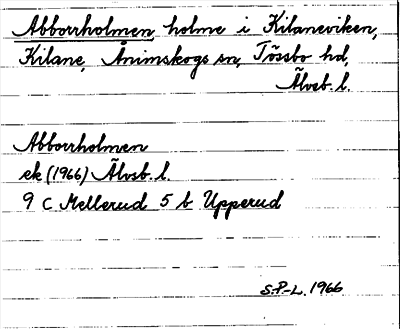 Abborrholmen, holme i Kilaneviken,
Kilane, Ånimskogs sn, Tössbo hd,
Älvsb. l.
Abborrholmen
ek (1966) Älvsb. l.
9 C Mellerud 5 b Upperud
S.P-L. 1966